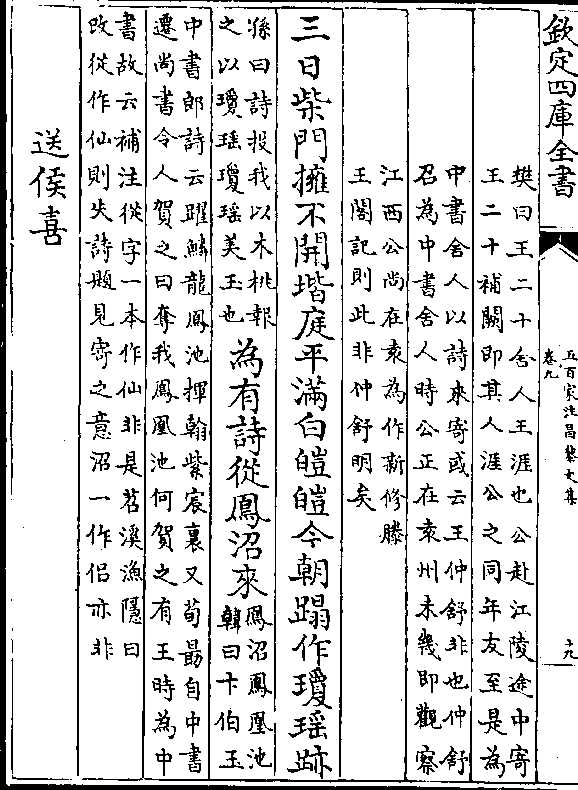 欽定四庫全書
五百家注昌黎文集
卷九
十九
樊曰王二十舍人王涯也公赴江陵途中寄
王二十補闕即其人涯公之同年友至是為
中書舍人以詩來寄或云王仲舒非也仲舒
召為中書舍人時公正在袁州未幾即觀察
江西公尚在袁為作新修滕
王閣記則此非仲舒明矣
三日柴門擁不開堦庭平滿白皚皚今朝蹋作瓊瑤跡
孫曰詩投我以木桃報
之以瓊瑤瓊瑤美玉也
為有詩從鳳沼來
鳳沼鳳凰池
韓曰卞伯玉
中書郎詩云躍鱗龍鳳池揮翰紫宸裏又荀勗自中書
遷尚書令人賀之曰奪我鳳凰池何賀之有王時為中
書故云補注從字一本作仙非是苕溪漁隱曰
改從作仙則失詩題見寄之意沼一作侣亦非
送侯喜